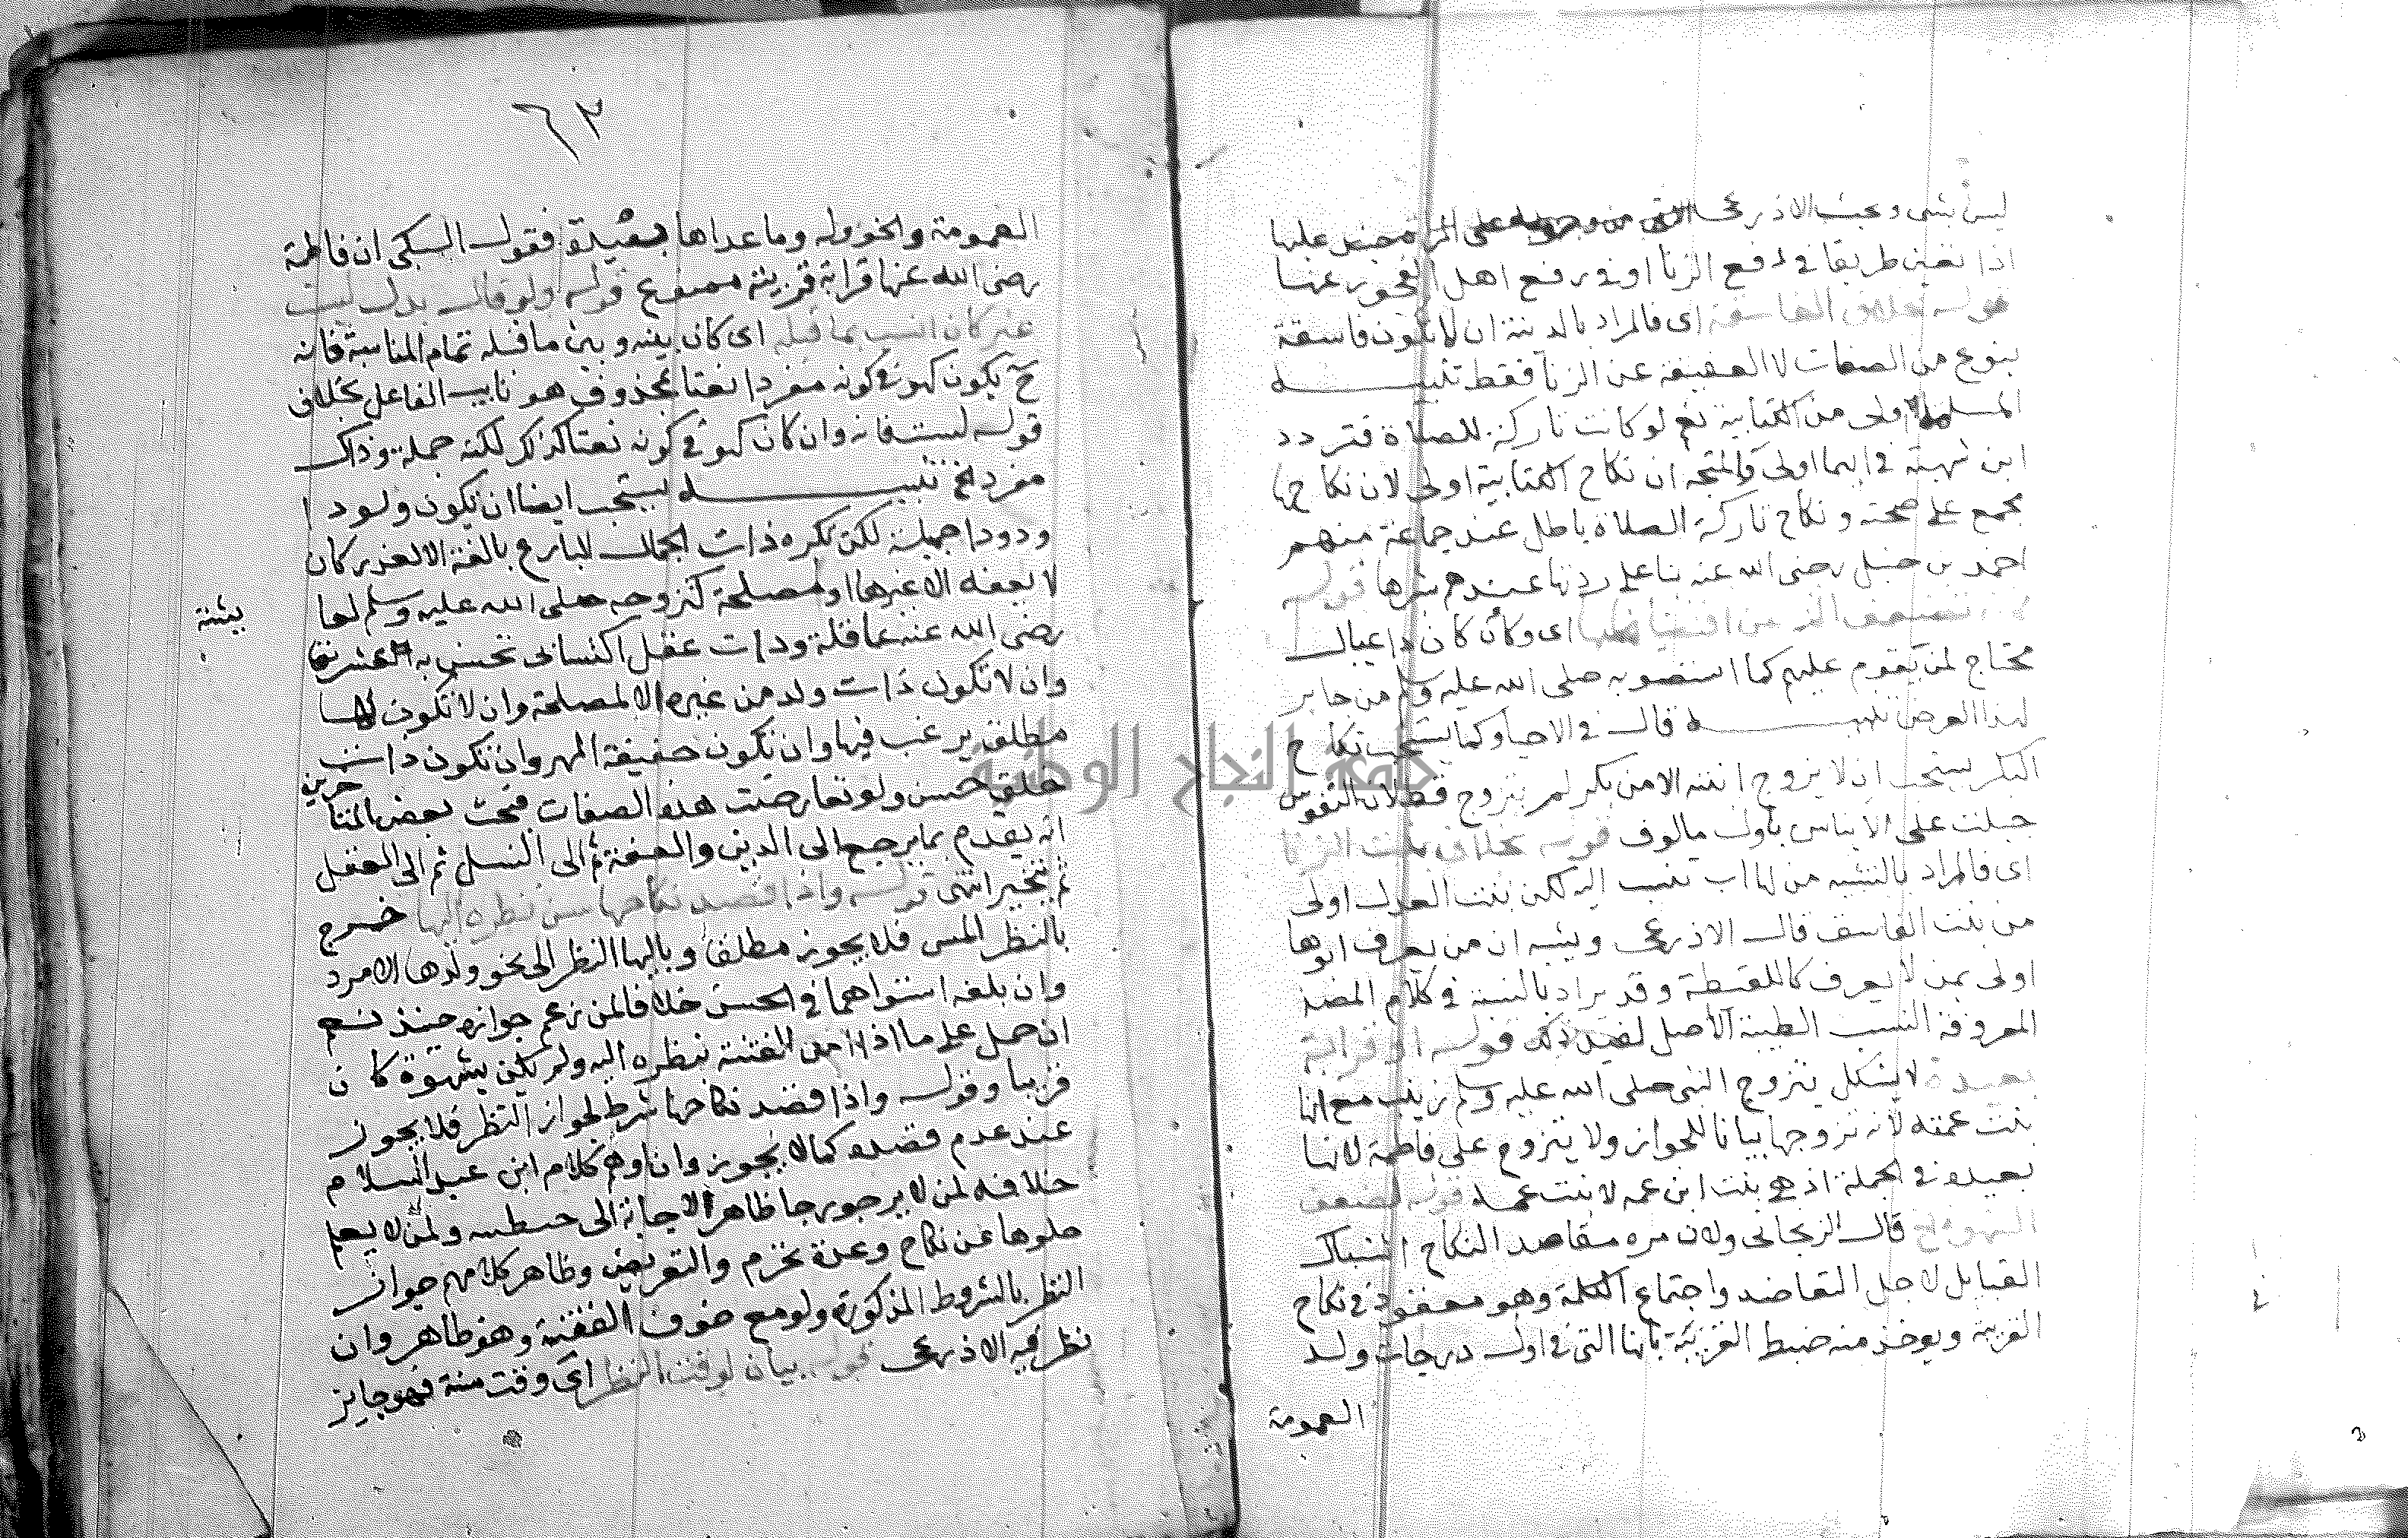 ليس بشى وبحث الاذرعى على المراة حينئذ عليها
اذا تعين طريقا في دفع الزنا او في رفع اهل الفجور عنها
قوله بخلاف الفاسقة اى فالمراد بالدينة ان لا تكون فاسقة
بنوع من الصفات لا العفيفة عن الزنا فقط تنبيه
المسلمة اولى من الكتابية نعم لو كانت تاركة للصلاة فتردد
ابن شهبة في ايهما اولى فالمتجه ان نكاح الكتابية اولى لان نكاحها
مجمع على صحته ونكاح تاركة الصلاة باطل عند جماعة منهم
احمد بن حنبل رضى الله عنه بنا على ردتها عندهم بتركها قوله
اى وكان كان ذا عيال
محتاج لمن يقوم عليهم كما استصوبه صلى الله عليه وسلم من جابر
لهذا الغرض تنبيه قال في الاحيا وكما يستحب نكاح
البكر يستحب ان لا يزوج ابنته الا من بكر لم يتزوج قط لان النفوس
جبلت على الايناس باول مالوف قوله بخلاف بنت الزنا
اى فالمراد بالنسيبة من لها اب تنسب اليه لكن بنت العدل اولى
من بنت الفاسق قال الاذرعى ويشبه ان من يعرف ابوها
اولى بمن لا يعرف كاللقيطة وقد يراد بالنسبة في كلام المصنف
المعروفة النسب الطيبة الاصل لضد ذلك قوله او قرابة
بعيدة لا يشكل بتزوج النبى صلى الله عليه وسلم زينب مع انها
بنت عمته لانه تزوجها بيانا للجواز ولا يتزوج على فاطمة لانها
بعيدة في الجملة اذ هى بنت ابن عمه لا بنت عمه قوله لضعف
الشهوة الخ قال الزنجانى ولان من مقاصد النكاح اشتباك
القبايل لاجل التعاضد واجتماع الكلمة وهو مفقود في نكاح
القريبة ويوخذ منه ضبط القريبة بانها التى في اول درجات ولد
العمومة
٦٢
العمومة والخوولة وما عداها بعيدة فقول السبكى ان فاطمة
رضى الله عنها قرابة قريبة ممنوع قوله ولو قال بدل ليست
غير كان انسب بما قبله اى كان بينه وبين ما قبله تمام المناسبة فانه
ح يكون كهو في كونه مفردا نعتا لمحذوف هو نايب الفاعل بخلاف
قوله ليست فانه وان كان كهو في كونه نعتا كذلك لكنه جملة وذاك
مفرد الخ تنبيه يستحب ايضا ان يكون ولودا
ودودا جميلة لكن تكره ذات الجمال البارع بالفتة الا لعذر كان
لا يعفه الا غيرها او لمصلحة كتزوجه صلى الله عليه وسلم لعا
يشة
رضى الله عنه عاقلة وذات عقل اكتسابى تحسن به العشرة
وان لا تكون ذات ولد من غيره الا لمصلحة وان لا تكون لها
مطلق يرغب فيها وان تكون خفيفة المهر وان تكون ذات
خلق حسن ولو تعارضت هذه الصفات فبحث بعض المتا
خرين
انه يقدم بما يرجع الى الدين والعفة ثم الى النسل ثم الى العقل
ثم يتخير انتهى قوله واذا قصد نكاحها سن نظره اليها خرج
بالنظر المس فلا يجوز مطلقا وباليها النظر الى نحو ولدها الامرد
وان بلغه استواهما في الحسن خلافا لمن زعم جوازه حينئذ نعم
ان حمل على ما اذا امن الفتنة بنظره اليه ولم يكن بشهوة كان
قريبا وقوله واذا قصد نكاحها شرط لجواز النظر فلا يجوز
عند عدم قصده كما لا يجوز وان اوهم كلام ابن عبد السلام
خلافه لمن لا يرجو رجا ظاهرا الاجابة الى خطبته ولمن لا يعلم
خلوها عن نكاح وعدة تحرم والتعريض وظاهر كلامهم جواز
النظر بالشروط المذكورة ولو مع خوف الفتنة وهو ظاهر وان
نظر فيه الاذرعى قوله بيان لوقت النظر اى وقت سنة فهو جايز
جامعة النجاح الوطنية